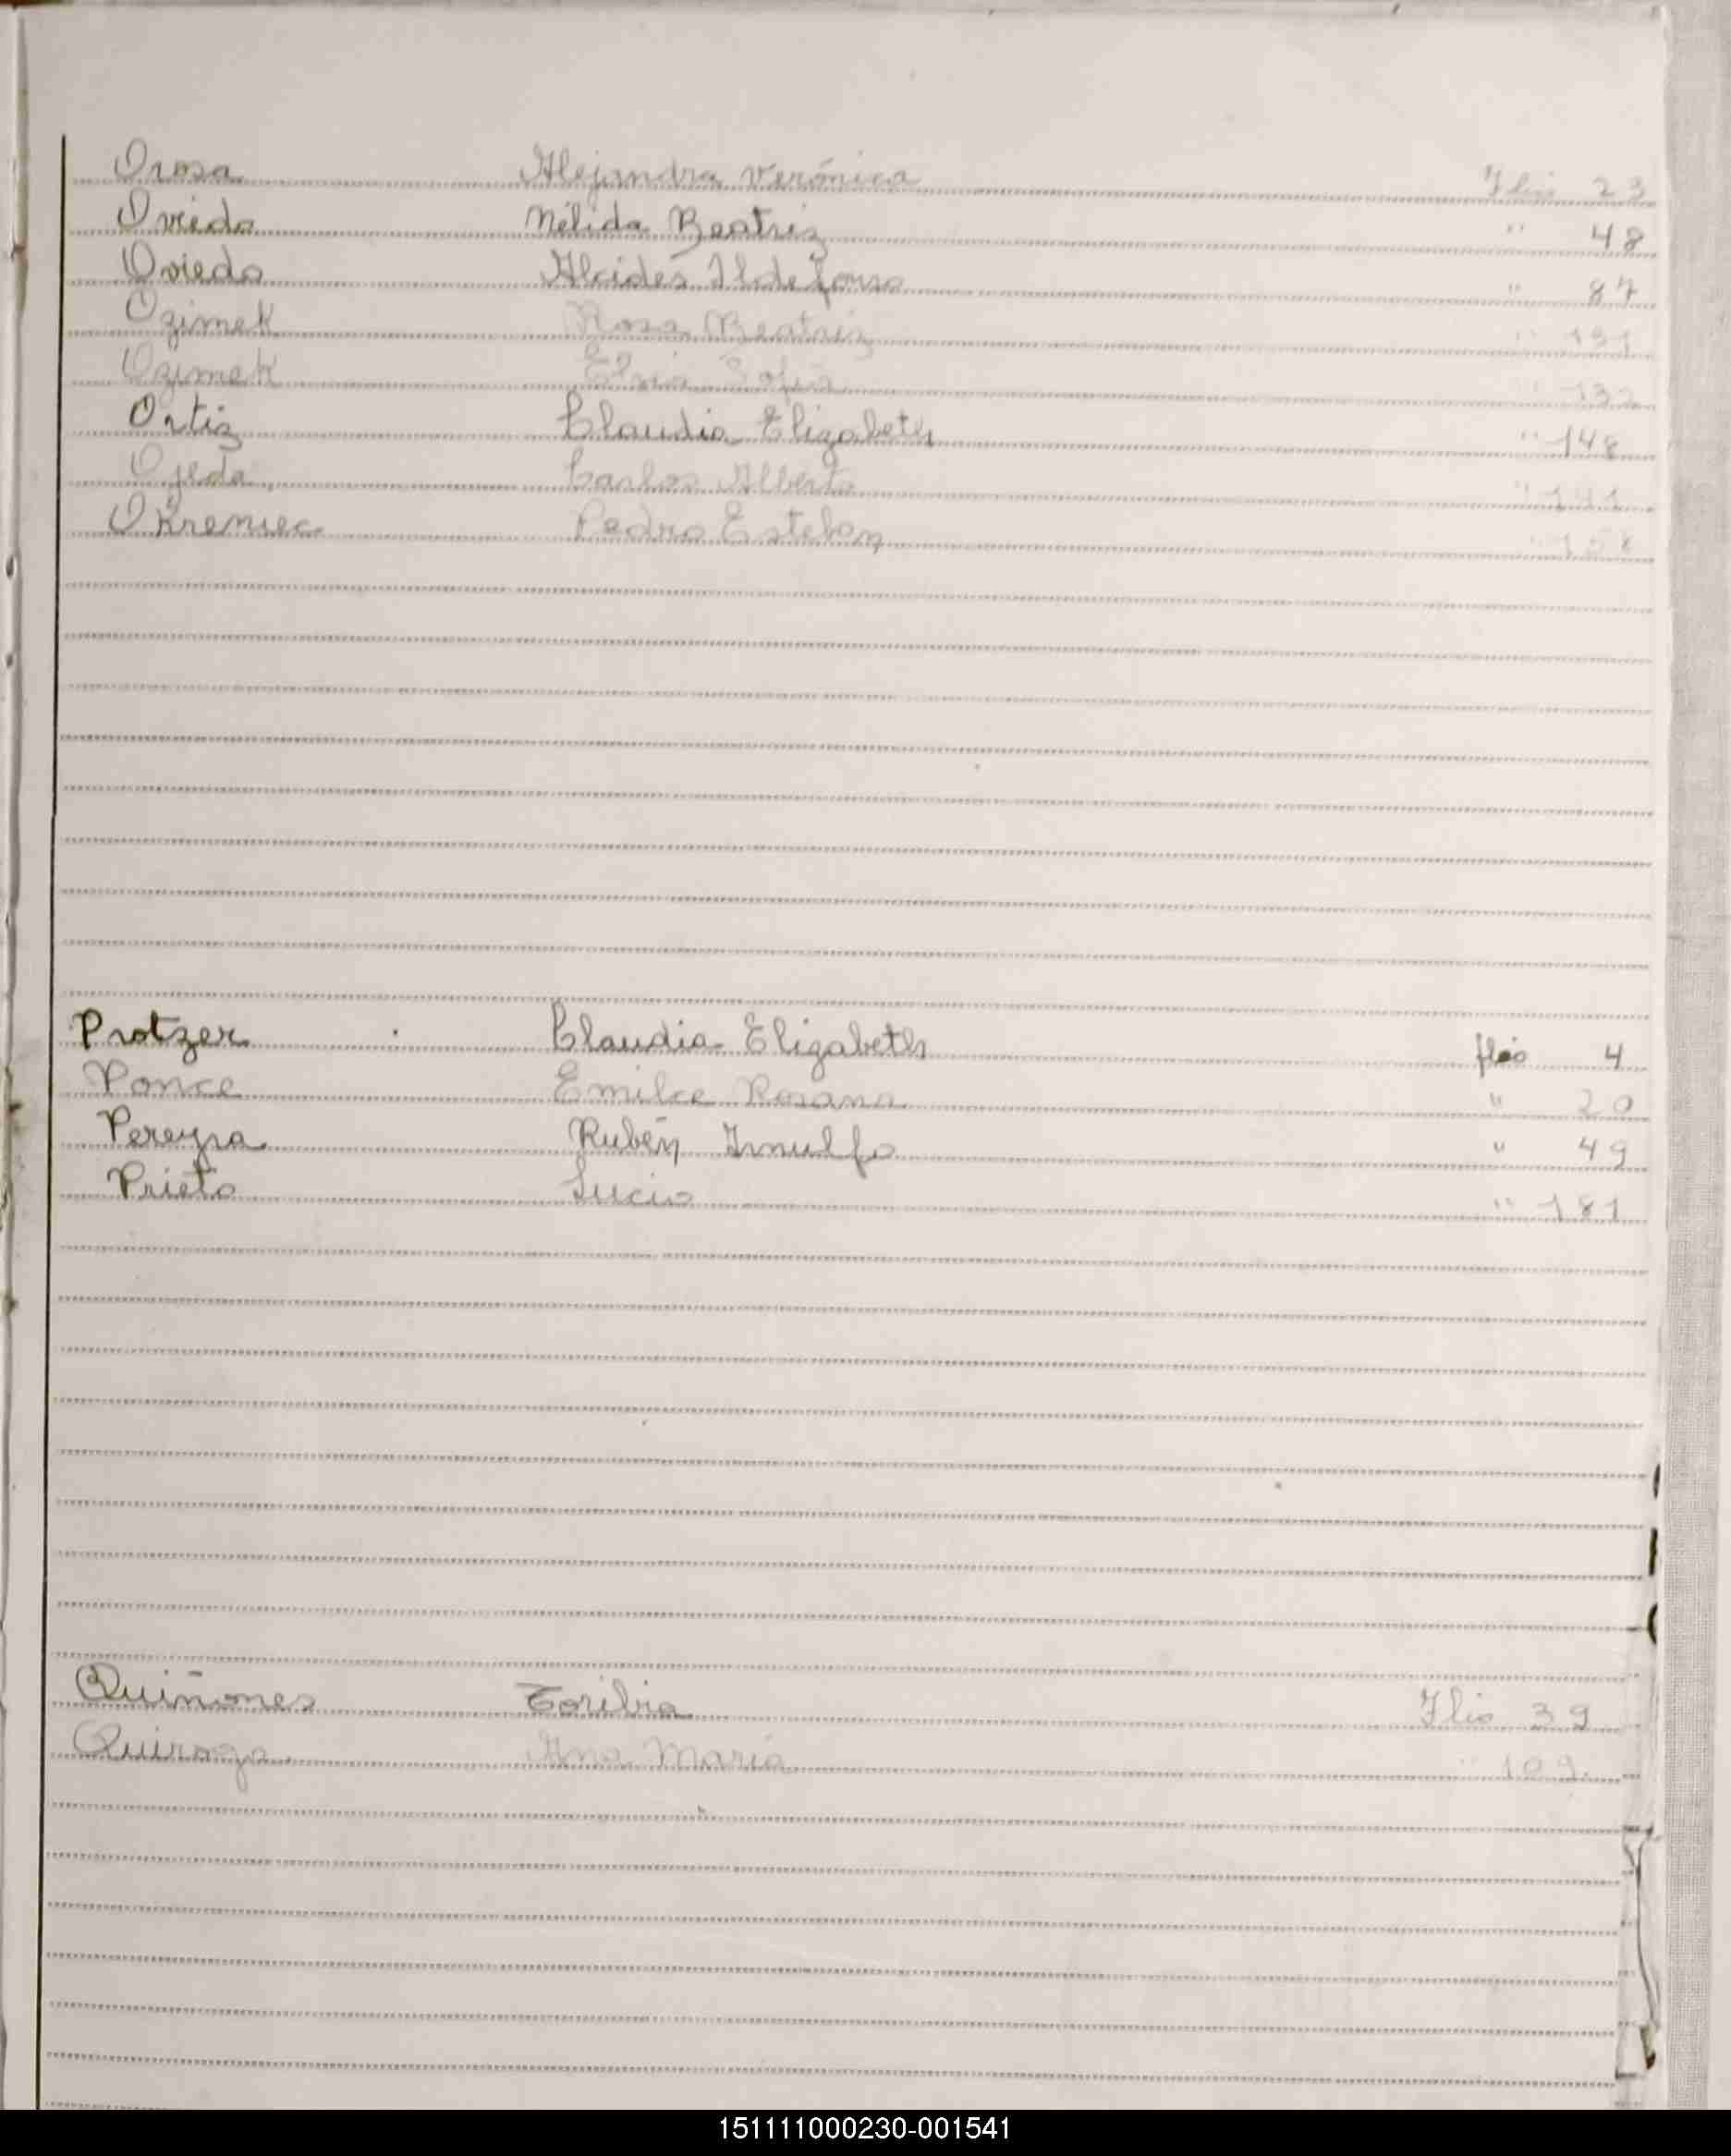 Orosa Alejandra Verónica Flio 23
Oviedo Nélida Beatriz " 48
Oviedo Alcides Ildefonso " 87
Ozimek Rosa Beatriz " 131
Ozimek Sofia " 132
Ortiz Claudia Elizabeth " 148
Ojeda Carlos Alberto "
Okreniec Pedro Esteban "
Protzer Claudia Elizabeth flio 4
Ponce Emilce Rosana " 20
Pereyra Rubén " 49
Prieto Lucio " 181
Quiñones Toribia Flio 39
Quiroga Ana Maria " 109
151111000230-001541